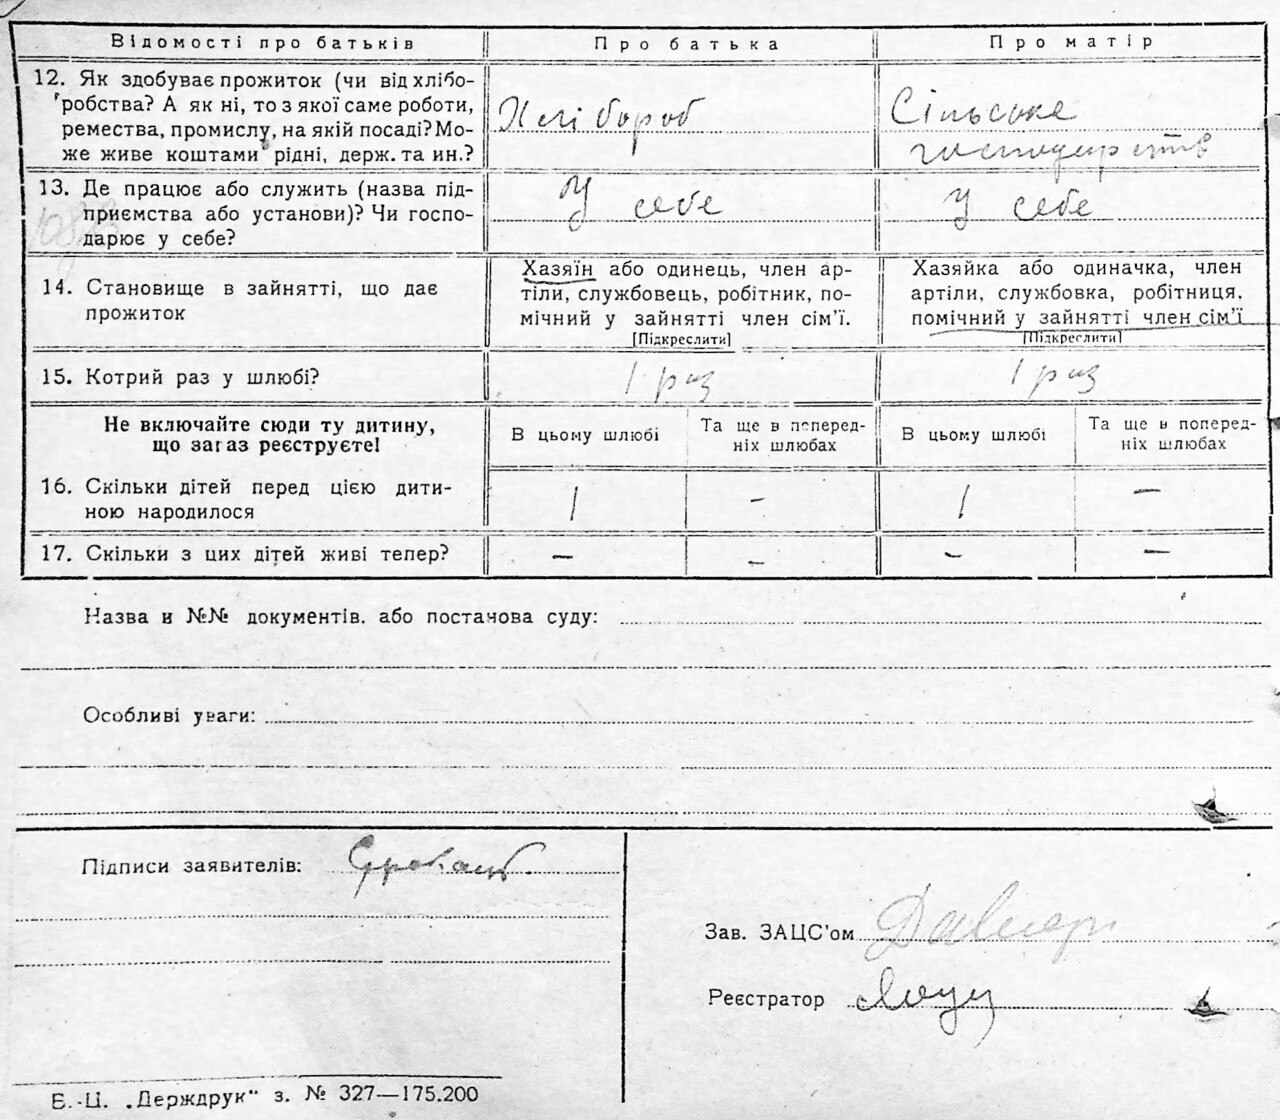 Відомості про батьків Про батька Про матір
12. Як здобуває прожиток (чи від хлібо-
робства? А як ні, то з якої саме роботи,
ремества, промислу, на якій посаді? Мо-
же живе коштами рідні, держ. та ин.?
Хлібороб
Сільське
господарств
13. Де працює або служить (назва під-
приємства або установи)? Чи госпо-
дарює у себе?
У себе
У себе
14. Становище в зайнятті, що дає
прожиток
Хазяїн або одинець, член ар-
тіли, службовець, робітник, по-
мічний у зайнятті член сім'ї.
[Підкреслити]
Хазяйка або одиначка, член
артіли, службовка, робітниця,
помічний у зайнятті член сім'ї
[Підкреслити]
15. Котрий раз у шлюбі? 1 раз 1 раз
Не включайте сюди ту дитину,
що зараз реєструєте!
В цьому шлюбі
Та ще в поперед-
ніх шлюбах
В цьому шлюбі
Та ще в поперед-
ніх шлюбах
16. Скільки дітей перед цією дити-
ною народилося
1 – 1 –
17. Скільки з цих дітей живі тепер? – – – –
Назва и №№ документів. або постанова суду:
Особливі уваги:
Підписи заявителів:
Зав. ЗАЦС'ом
Реєстратор
Б.-Ц. „Держдрук" з. № 327—175.200